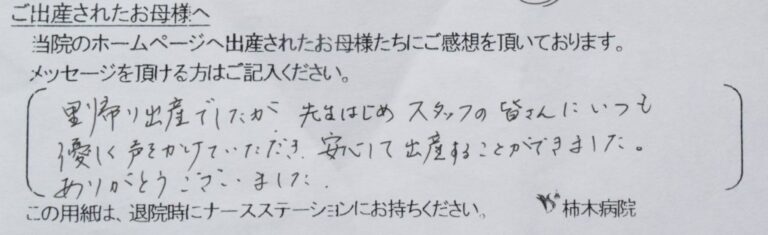 ご出産されたお母様へ
当院のホームページへ出産されたお母様たちにご感想を頂いております。
メッセージを頂ける方はご記入ください。
里帰り出産でしたが、先生はじめスタッフの皆さんにいつも
優しく声をかけていただき、安心して出産することができました。
ありがとうございました。
この用紙は、退院時にナースステーションにお持ちください。 柿木病院